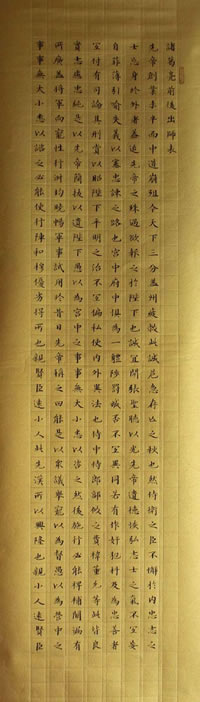 諸葛亮前後出師表
先帝創業未半而中道崩殂今天下三分益州疲敝此誠危急存亡之秋也然侍衛之臣不懈於內忠志之
士忘身於外者蓋追先帝之殊遇欲報之於陛下也誠宜開張聖聽以光先帝遺德恢弘志士之氣不宜妄
自菲薄引喻失義以塞忠諫之路也宮中府中俱為一體陟罰臧否不宜異同若有作奸犯科及為忠善者
宜付有司論其刑賞以昭陛下平明之治不宜偏私使內外異法也侍中侍郎郭攸之費禕董允等此皆良
實志慮忠純是以先帝簡拔以遺陛下愚以為宮中之事事無大小悉以咨之然後施行必能裨補闕漏有
所廣益將軍向寵性行淑均曉暢軍事試用於昔日先帝稱之曰能是以眾議舉寵以為督愚以為營中之
事事無大小悉以諮之必能使行陳和穆優劣得所也親賢臣遠小人此先漢所以興隆也親小人遠賢臣